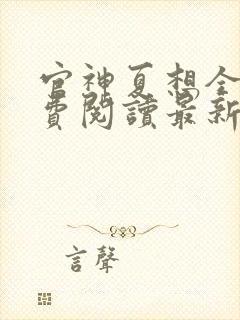 官神夏想全
費閱讀最新
言聲